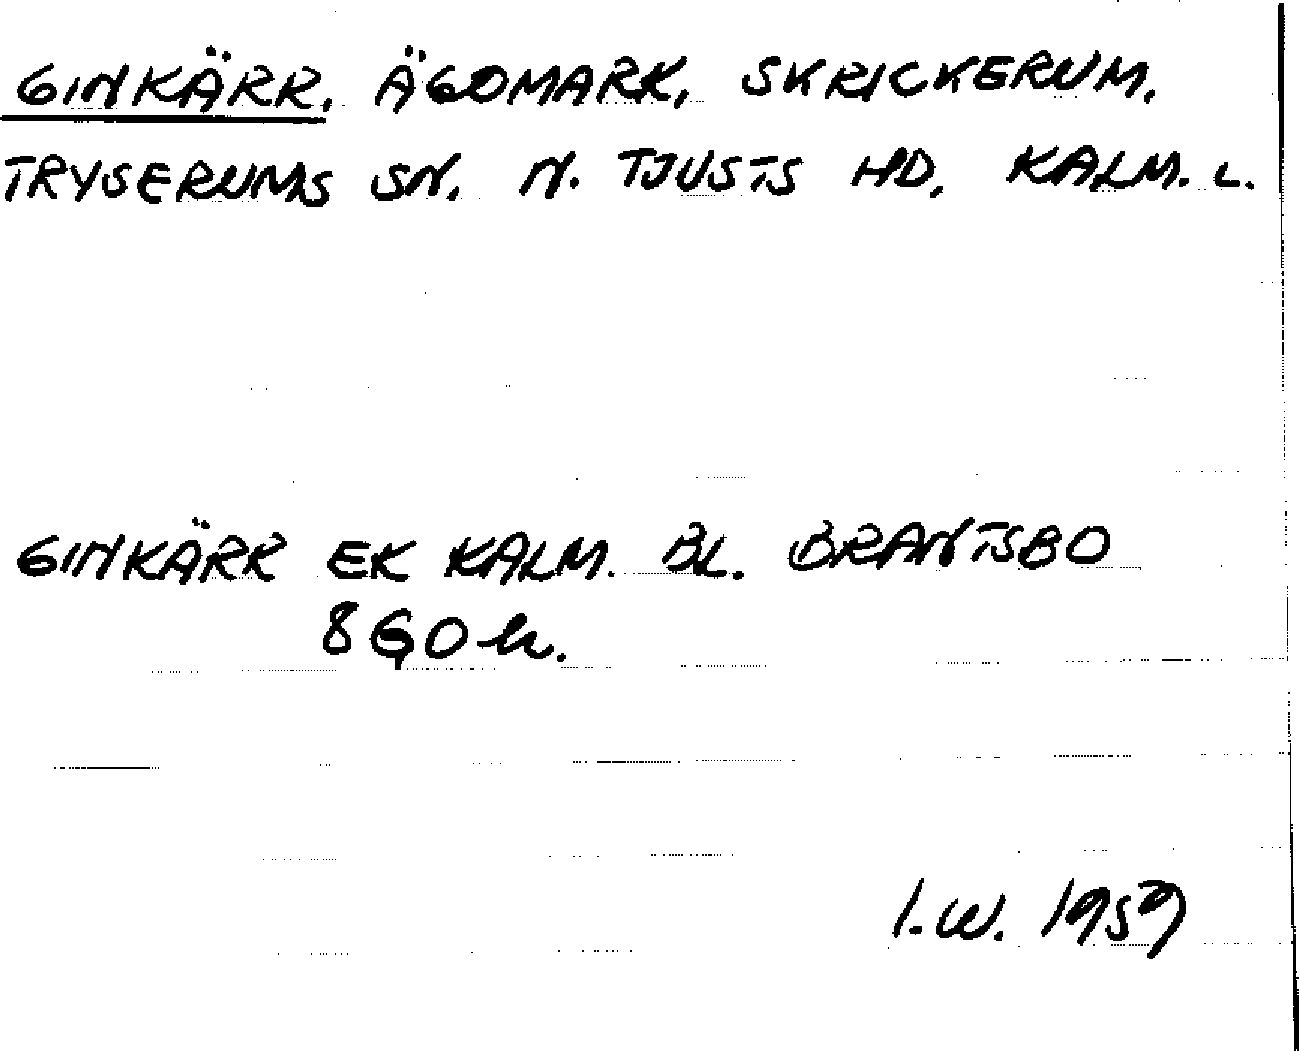 GINKÄRR, ÄGOMARK, SKRICKERUM,
TRYSERUMS SN. N. TJUSTS HD, KALM. L.
GINKÄRR EK KALM. BL. BRANTSBO
8G0h.
I.W. 1959